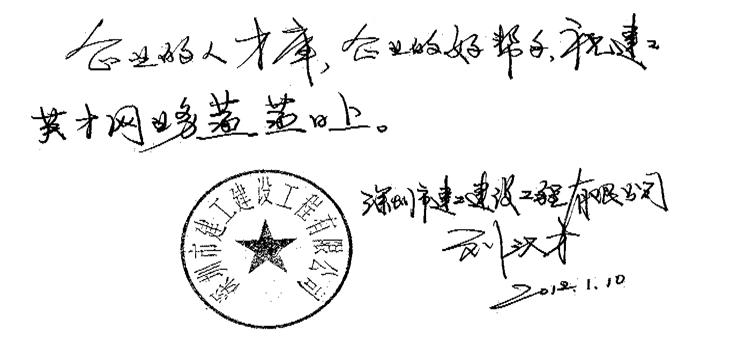 企业的人才库，企业的好帮手，祝建工
英才网业务蒸蒸日上。
深圳市建工建设工程有限公司
深圳市建工建设工程有限公司
刘
2012.1.10